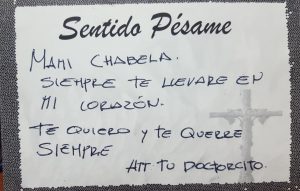 Sentido Pésame
MAMI CHABELA.
SIEMPRE TE LLEVARE EN
MI CORAZÓN.
TE QUIERO Y TE QUERRE
SIEMPRE
ATT TU DOCTORCITO.